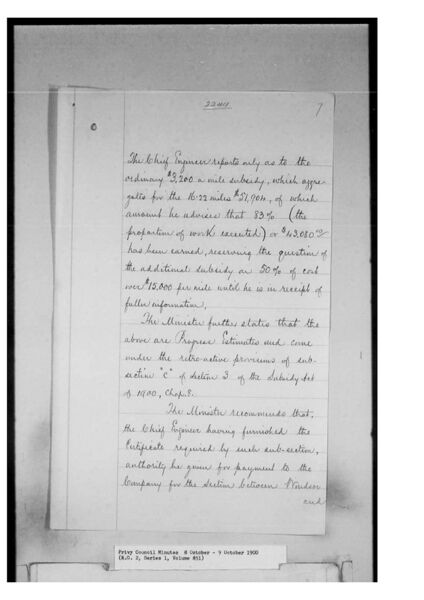 2244
7
The Chief Engineer reports only as to the
ordinary $3,200 a mile subsidy, which aggre-
gates for the 16.22 miles $51,904, of which
amount he advises that 83% (the
proportion of work executed) or $43,080
has been earned, reserving the question of
the additional subsidy on 50% of cost
over $15,000 per mile until he is in receipt of
fuller information.
The Minister further states that the
above are Progress Estimates and come
under the retro-active provisions of sub-
section "c" of section 3 of the Subsidy Act
of 1900, Chap. 8.
The Minister recommends that,
the Chief Engineer having furnished the
Certificate required by such sub-section,
authority be given for payment to the
Company for the section between Windsor
and
Privy Council Minutes 8 October - 9 October 1900
(R.G. 2, Series 1, Volume 851)